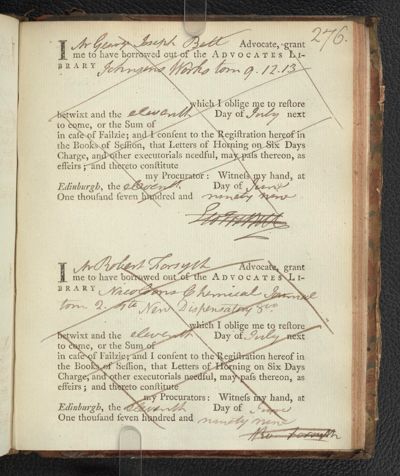 276.
I Mr George Joseph Bell Advocate, grant
me to have borrowed out of the ADVOCATES LI-
BRARY Johnsons Works tom 9. 12. 13
which I oblige me to reſtore
betwixt and the eleventh Day of July next
to come, or the Sum of
in caſe of Failzie; and I conſent to the Regiſtration hereof in
the Books of Seſſion, that Letters of Horning on Six Days
Charge, and other executorials needful, may paſs thereon, as
effeirs; and thereto conſtitute
my Procurator: Witneſs my hand, at
Edinburgh, the eleventh Day of June
One thouſand ſeven hundred and ninety nine
I Mr Robert Forsyth Advocate, grant
me to have borrowed out of the ADVOCATES LI-
BRARY Nicolsons Chemical Journal
tom 2. New Dispensatory 8vo
which I oblige me to reſtore
betwixt and the eleventh Day of July next
to come, or the Sum of
in caſe of Failzie; and I conſent to the Regiſtration hereof in
the Books of Seſſion, that Letters of Horning on Six Days
Charge, and other executorials needful, may paſs thereon, as
effeirs; and thereto conſtitute
my Procurator: Witneſs my hand, at
Edinburgh, the eleventh Day of June
One thouſand ſeven hundred and ninety nine
Forsyth